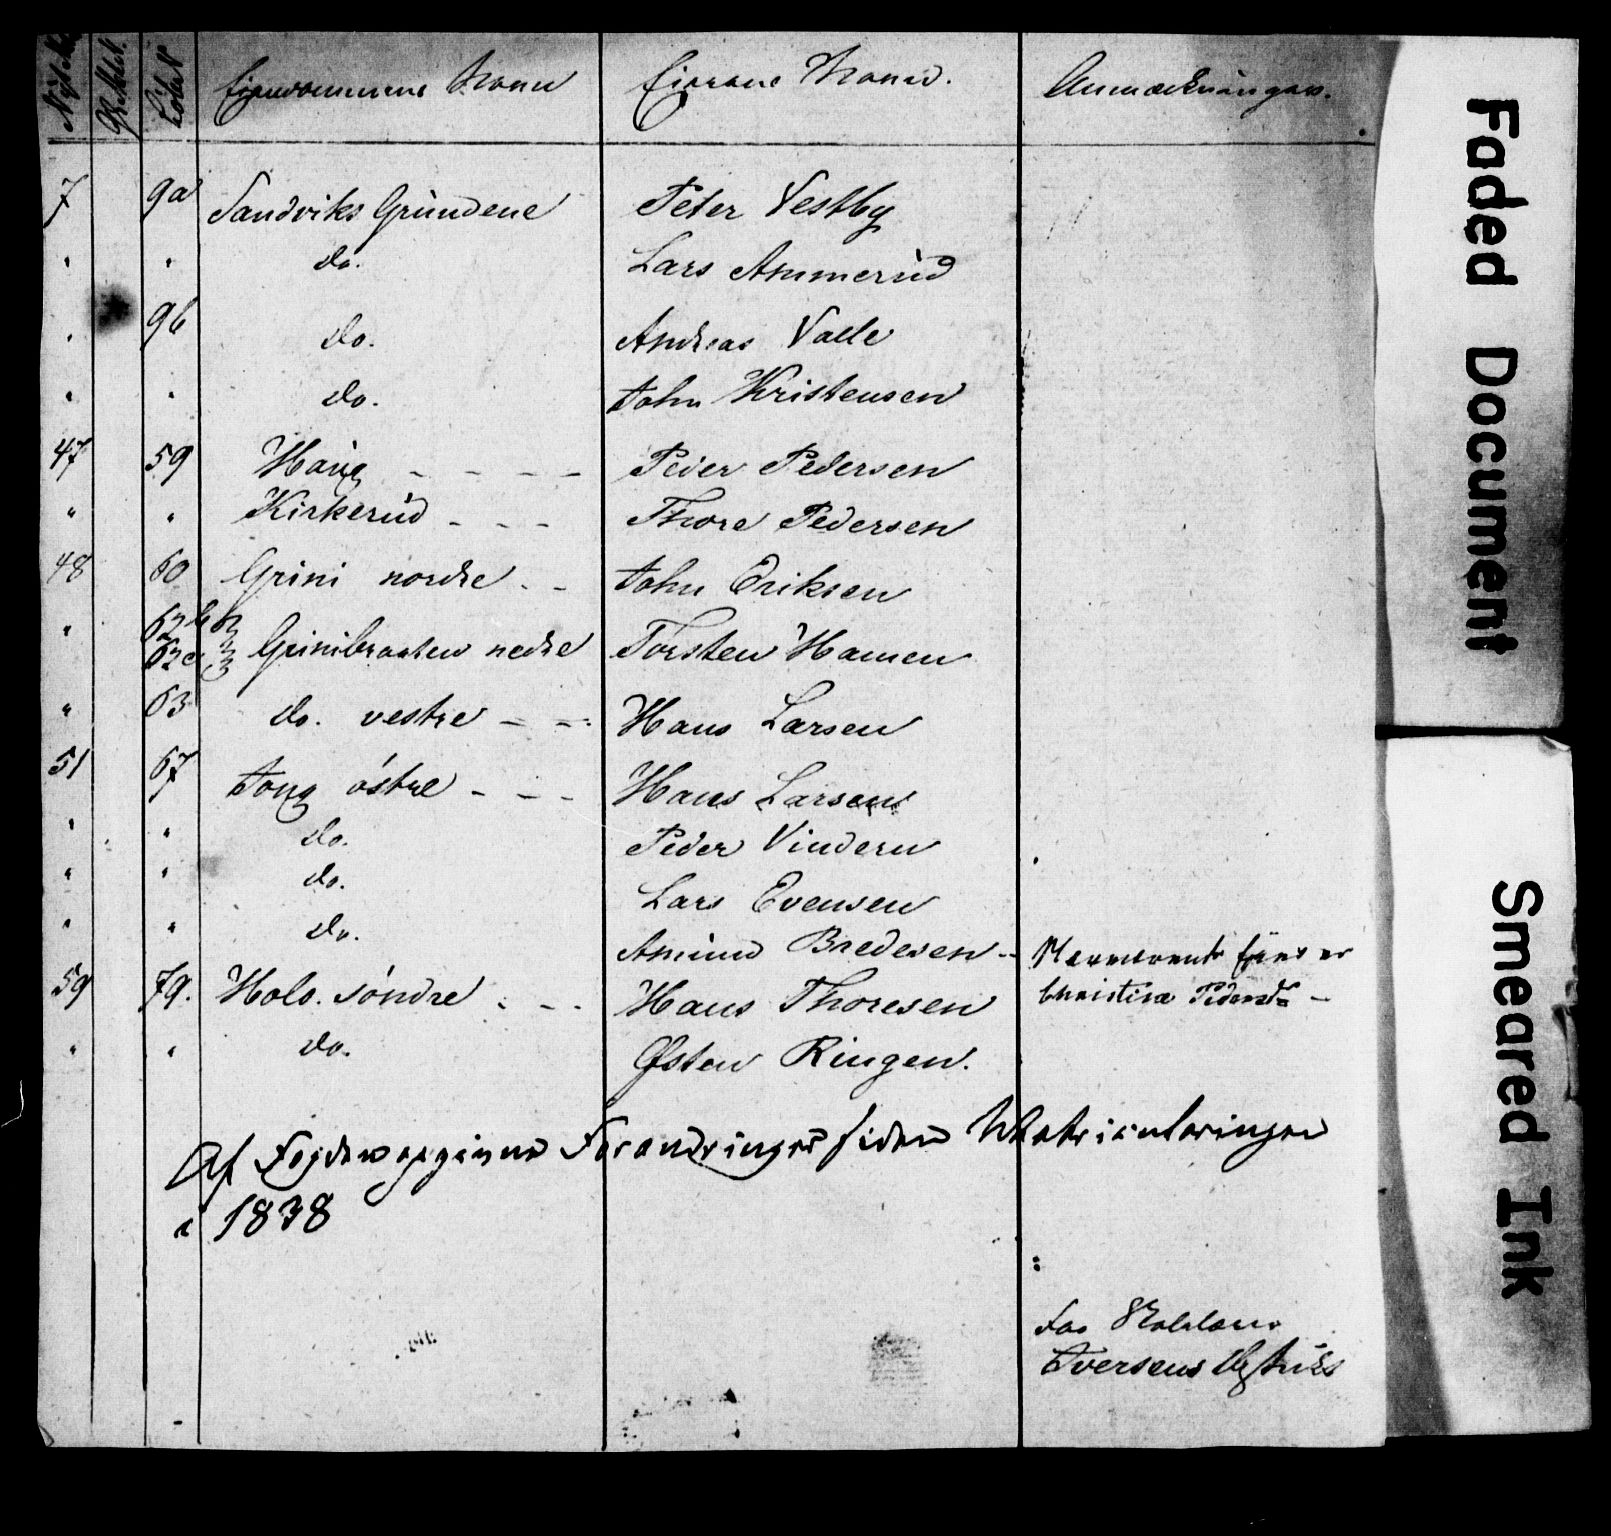 Eiendommene Navn Eierens Navn. Anmærkninger.
7 9a Sandviks Grundene Peter Vestby
" " do. Lars Ammerud
" 9b do. Andreas Valle
" " do. John Kristensen
47 59 Haug - - - - Peder Pedersen
" " Kirkerud - - - Thore Pedersen
48 60 Grini nordre - - John Eriksen
" 62b
62c Grinibraaten nedre Torsten Hamen
" 63 do. vestre - - Hans Larsen
51 67 Jong östre - - - Hans Larsen
" " do. Peder Vindern
" " do. Lars Evensen
" " do. Amund Bredesen --
59 79. Holo. söndre - - - Hans Thoresen Christine Pedersd. -
" " do. Østen Ringen.
Af Fogden opgivne Forandringer siden Matriculeringen
i 1838
Iversens
Faded Document
Smeared Ink